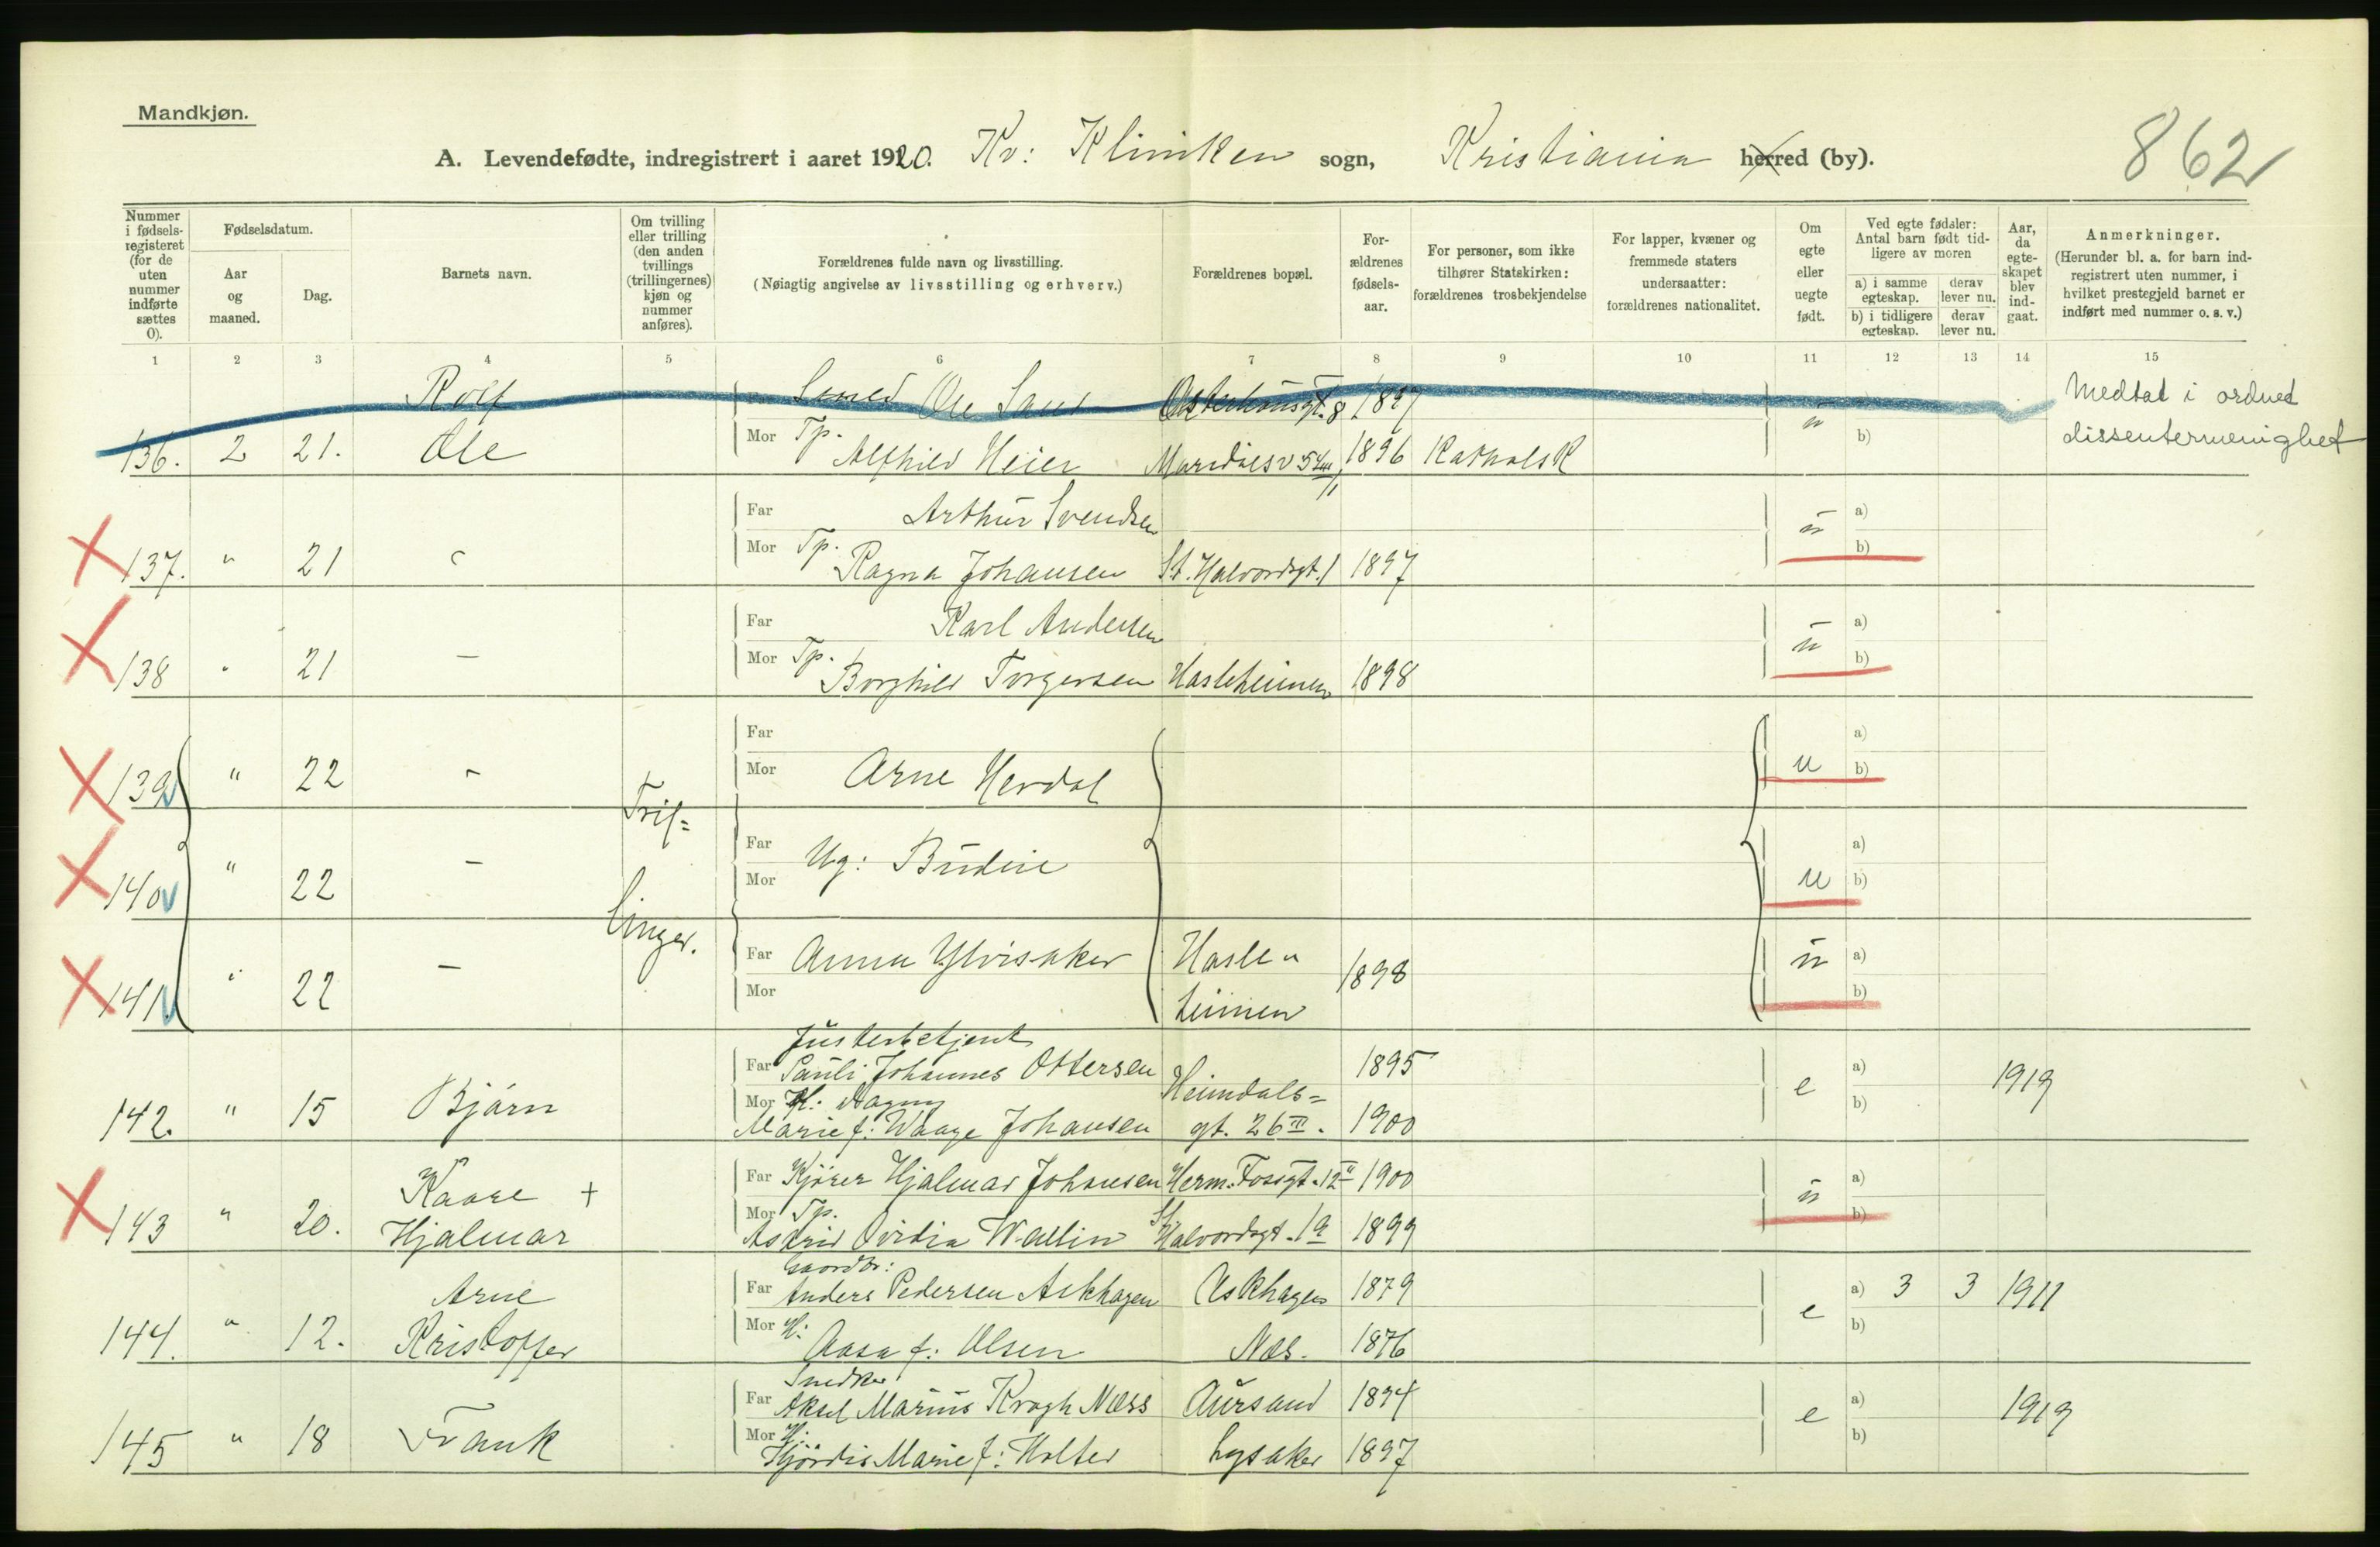 Mandkjøn.
A. Levendefødte, indregistrert i aaret 1920. Kv: Kliniken sogn, Kristiania herred (by).
862
Nummer i fødsels-registeret (for de uten nummer indførte sættes 0).
Fødselsdatum.
Aar og maaned.
Dag.
Barnets navn.
Om tvilling eller trilling (den anden tvillings (trillingernes) kjøn og nummer anføres).
Forældrenes fulde navn og livsstilling.
(Nøiagtig angivelse av livsstilling og erhverv.)
Forældrenes bopæl.
For-ældrenes fødsels-aar.
For personer, som ikke tilhører Statskirken: forældrenes trosbekjendelse
For lapper, kvæner og fremmede staters undersaatter: forældrenes nationalitet.
Om egte eller uegte født.
Ved egte fødsler: Antal barn født tid-ligere av moren
a) i samme egteskap.
derav lever nu.
b) i tidligere egteskap.
derav lever nu.
Aar, da egte-skapet blev ind-gaat.
Anmerkninger.
(Herunder bl. a. for barn ind-registrert uten nummer, i hvilket prestegjeld barnet er indført med nummer o. s. v.)
1 2 3 4 5 6 7 8 9 10 11 12 13 14 15
Rolf Ole 1897 Medtat i ordnet
136. 2 21. Ole Mor Tp. Alfhild Heier 1896 Katholsk ü b) dissentermenighet
Far Arthur Svendsen a)
137. " 21 Mor Tp. Ragna Johansen St. Halvordsgt. 1 1897 ü b)
Far Karl Andersen a)
138 " 21 – Mor Tp. Borghild Torgersen Hasleheimen 1898 ü b)
Far a)
139 " 22 – Tril= Mor Arne Herdal u b)
Far a)
140 " 22 – Ug: Mor u b)
141 " 22 – linger. Far Anna Ylvisaker Hasle 1898 ü a)
Mor heimen b)
Justerbetjent
Far Pauli Johannes Ottersen Heimdals= 1895 a) 1919
142. " 15 Bjørn Mor H: Dagny e b)
Marie f: Waage Johansen gt. 26 III. 1900
Kaare + Far Kjører Hjalmar Johansen Herm. Fossgt. 12 II 1900 a)
143 " 20. Hjalmar Mor Tp. Astrid Ovidia Wallin St. Halvordsgt. 1 a 1899 ü b)
Gaardbr:
Arne Far Anders Pedersen Askhagen Askhagen 1879 a) 3 3 1911
144. " 12. Kristoffer Mor H: Aasa f: Olsen Næs. 1876 e b)
Snedker
Far Aksel Marius Krogh Næss Aursand 1894 a) 1919
145 " 18 Frank Mor H: Hjördis Marie f: Holter Lysaker 1897 e b)